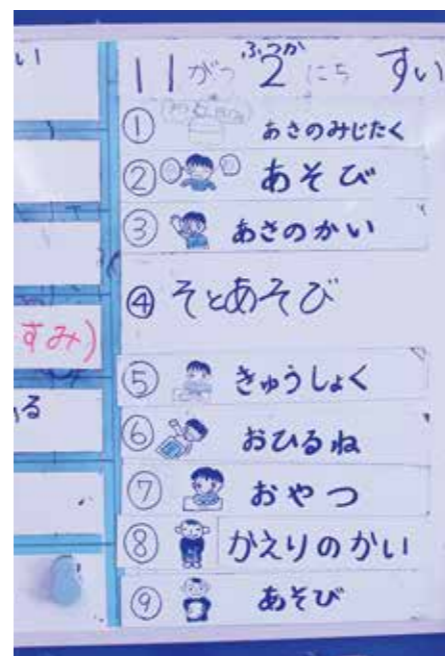 い
ふつか
11がつ2にち すい
① あさのみじたく
② あそび
③ あさのかい
④ そとあそび
すみ)
⑤ きゅうしょく
る
⑥ おひるね
⑦ おやつ
⑧ かえりのかい
⑨ あそび